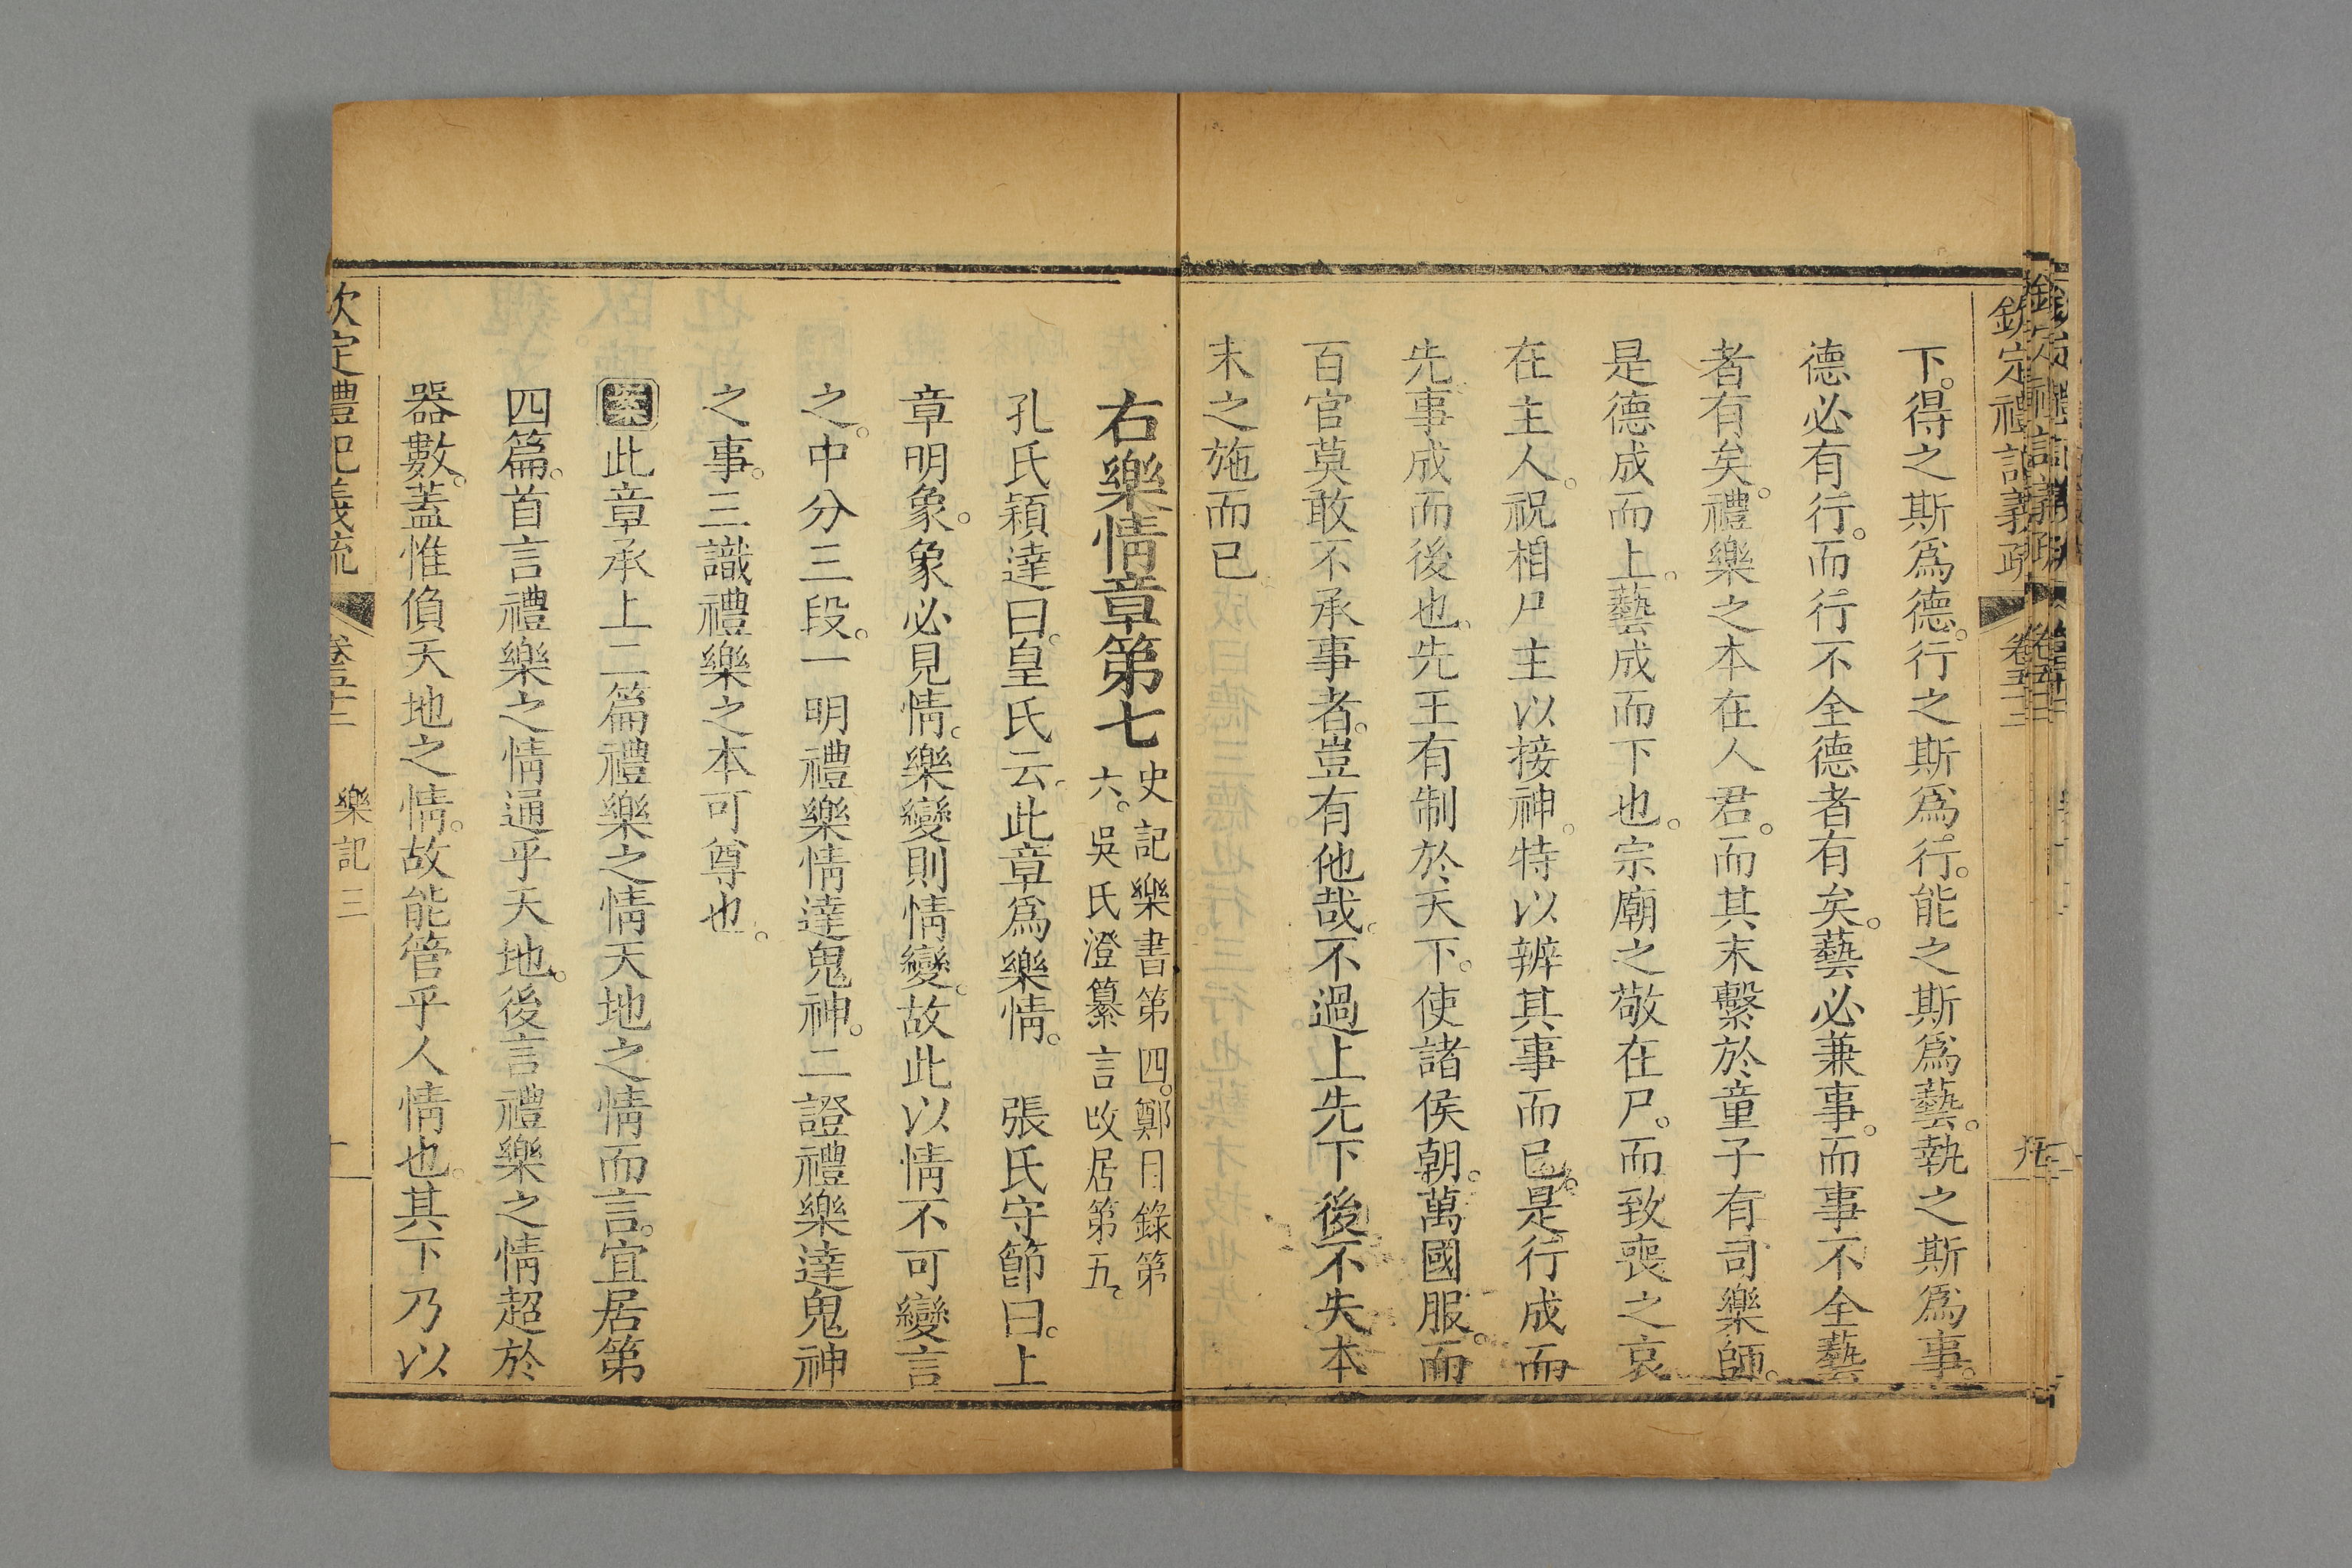 欽定禮記義疏 卷五十二
下。得之斯爲德。行之斯爲行。能之斯爲藝。執之斯爲事。
德必有行。而行不全德者有矣。藝必兼事。而事不全藝
者有矣。禮樂之本在人君。而其末繫於童子有司樂師。
是德成而上。藝成而下也。宗廟之敬在尸。而致喪之哀
在主人。祝相尸主以接神。特以辨其事而已。是行成而
先。事成而後也。先王有制於天下。使諸侯朝。萬國服。而
百官莫敢不承事者。豈有他哉。不過上先下後。不失本
末之施而已
右樂情章第七
史記樂書第四。鄭目錄第
六。吳氏澄纂言改居第五。
孔氏穎達曰。皇氏云。此章爲樂情。 張氏守節曰。上
章明象。象必見情。樂變則情變。故此以情不可變言
之。中分三段。一明禮樂情達鬼神。二證禮樂達鬼神
之事。三識禮樂之本可尊也。
案此章承上二篇禮樂之情天地之情而言。宜居第
四篇。首言禮樂之情通乎天地。後言禮樂之情超於
器數。蓋惟偩天地之情。故能管乎人情也。其下乃以
欽定禮記義疏 卷五十二 樂記三